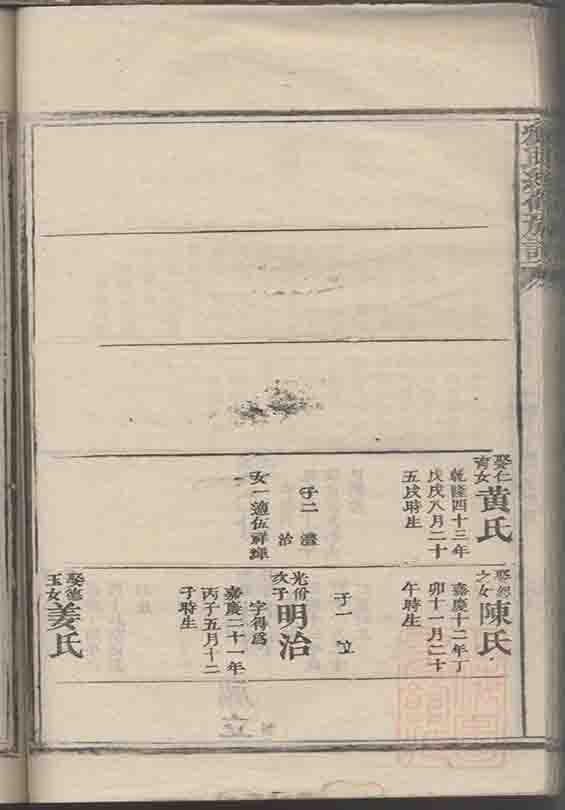 娶仁
育女
黄氏
乾隆四十三年
戊戌八月二十
五戌時生
子二 澧
治
女一適伍祥綠
娶恕
之女
陳氏
嘉慶十二年丁
卯十一月二十
午時生
子一 立
光份
次子
明治
字得爲
嘉慶二十一年
丙子五月十二
子時生
娶德
玉女
姜氏